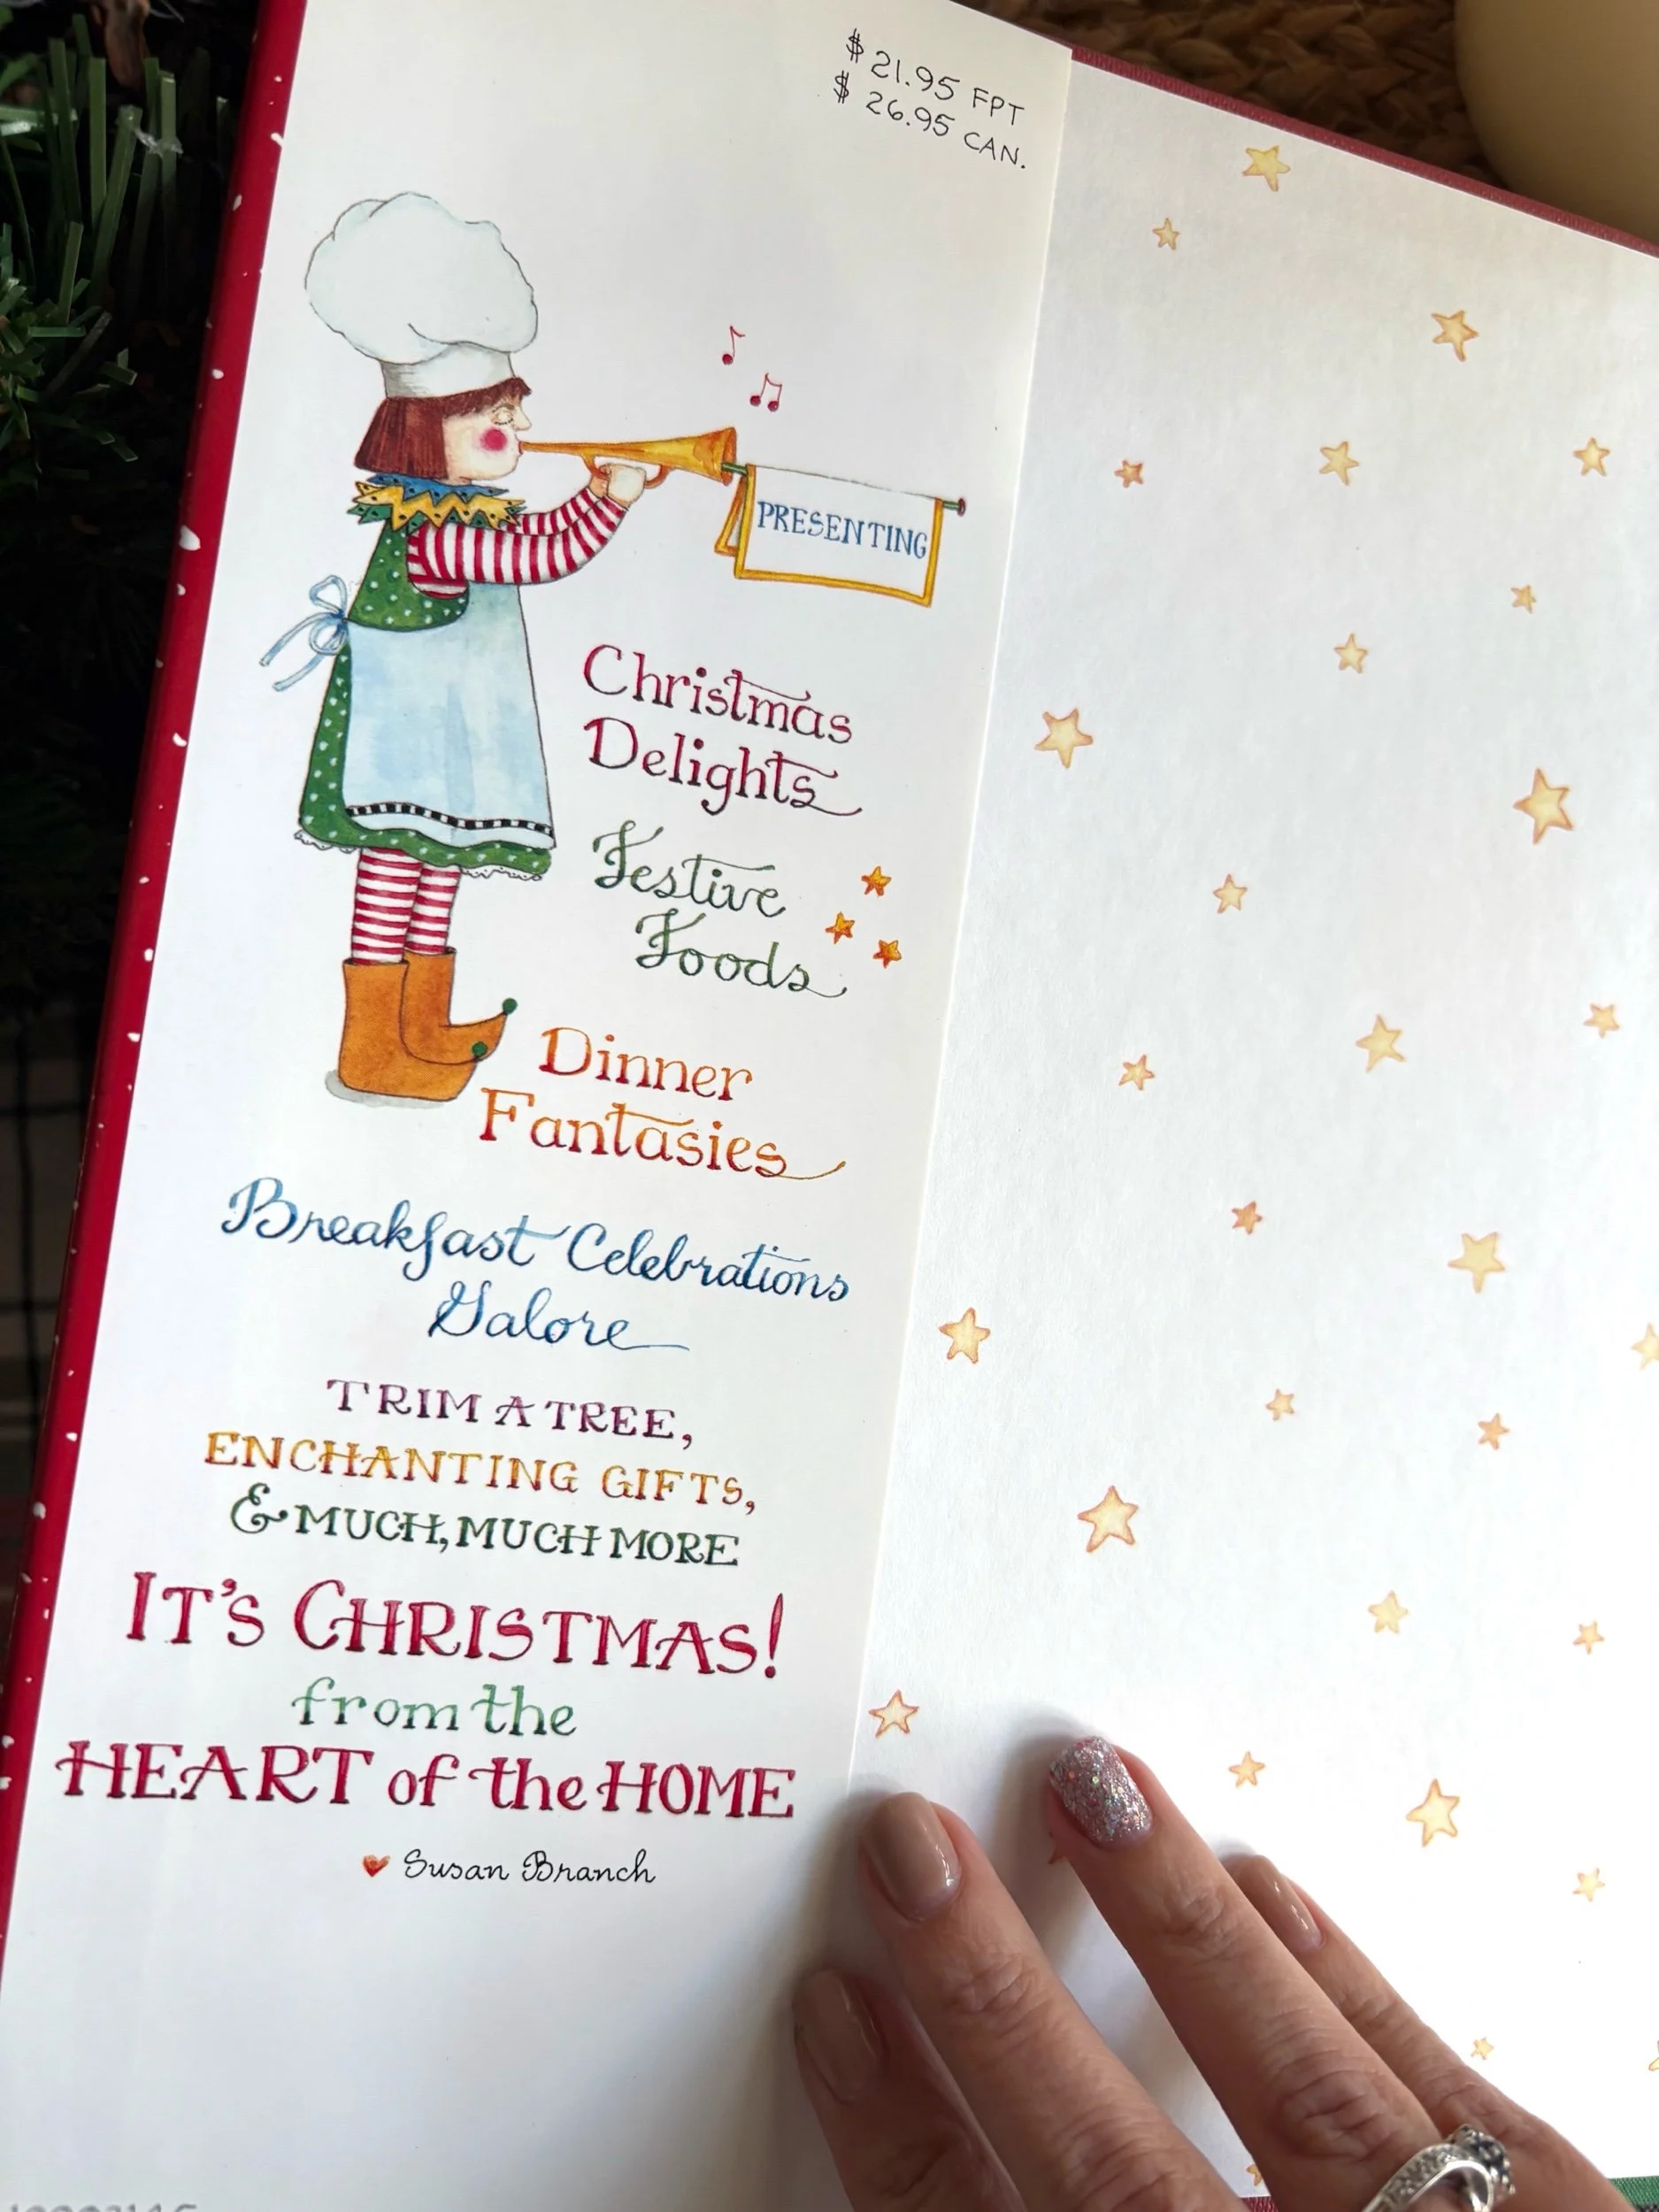 $ 21.95 FPT
$ 26.95 CAN.
PRESENTING
Christmas
Delights
Festive
Foods
Dinner
Fantasies
Breakfast Celebrations
Galore
TRIM A TREE,
ENCHANTING GIFTS,
& MUCH, MUCH MORE
IT'S CHRISTMAS!
from the
HEART of the HOME
Susan Branch